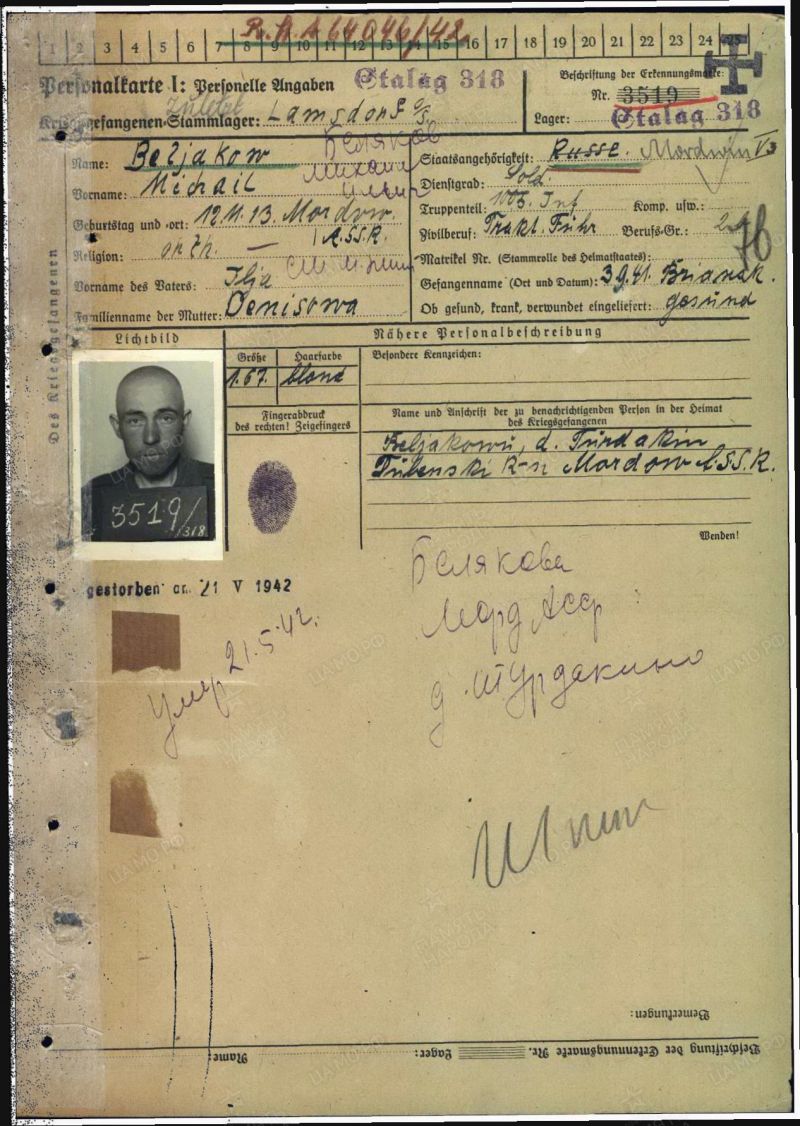 R.H.A 64046/42
1 2 3 4 5 6 7 8 9 10 11 12 13 14 15 16 17 18 19 20 21 22 23 24 25
Personalkarte I: Personelle Angaben
Stalag 318
Beschriftung der Erkennungsmarke:
Nr. 3519
Kriegsgefangenen-Stammlager: Lamsdorf
Lager: Stalag 318
Des Kriegsgefangenen
Name: Beljakow
Беляков
Vorname: Michail
Михаил
Geburtstag und -ort: 12.11.13. Mordow.
A.S.S.R.
Religion: orth.
Vorname des Vaters: Ilja
Familienname der Mutter: Denisowa
Staatsangehörigkeit: Russe. Mordwin
Dienstgrad: Sold.
Truppenteil: Inf Komp. usw.:
Zivilberuf: Trakt. Führ Berufs-Gr.:
Matrikel Nr. (Stammrolle des Heimatstaates):
Gefangennahme (Ort und Datum): 3.9.41. Briansk.
Ob gesund, krank, verwundet eingeliefert: gesund
Lichtbild
Nähere Personalbeschreibung
Größe Haarfarbe
1.67. blond
Besondere Kennzeichen:
Fingerabdruck
des rechten! Zeigefingers
Name und Anschrift der zu benachrichtigenden Person in der Heimat
des Kriegsgefangenen
Beljakowu, d. Turdakin
Mordow A.S.S.R.
3519/
318
Wenden!
gestorben am 21 V 1942
Белякова
Морд АССР
д. Турдакино
Умер 21.5.42.
Bemerkungen:
Name: Lager: Beschriftung der Erkennungsmarke Nr.